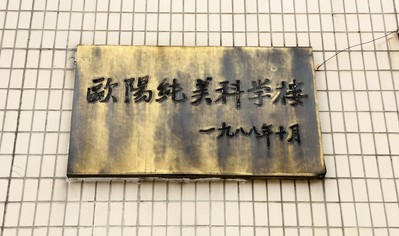 歐陽純美科学楼
一九八八年十月